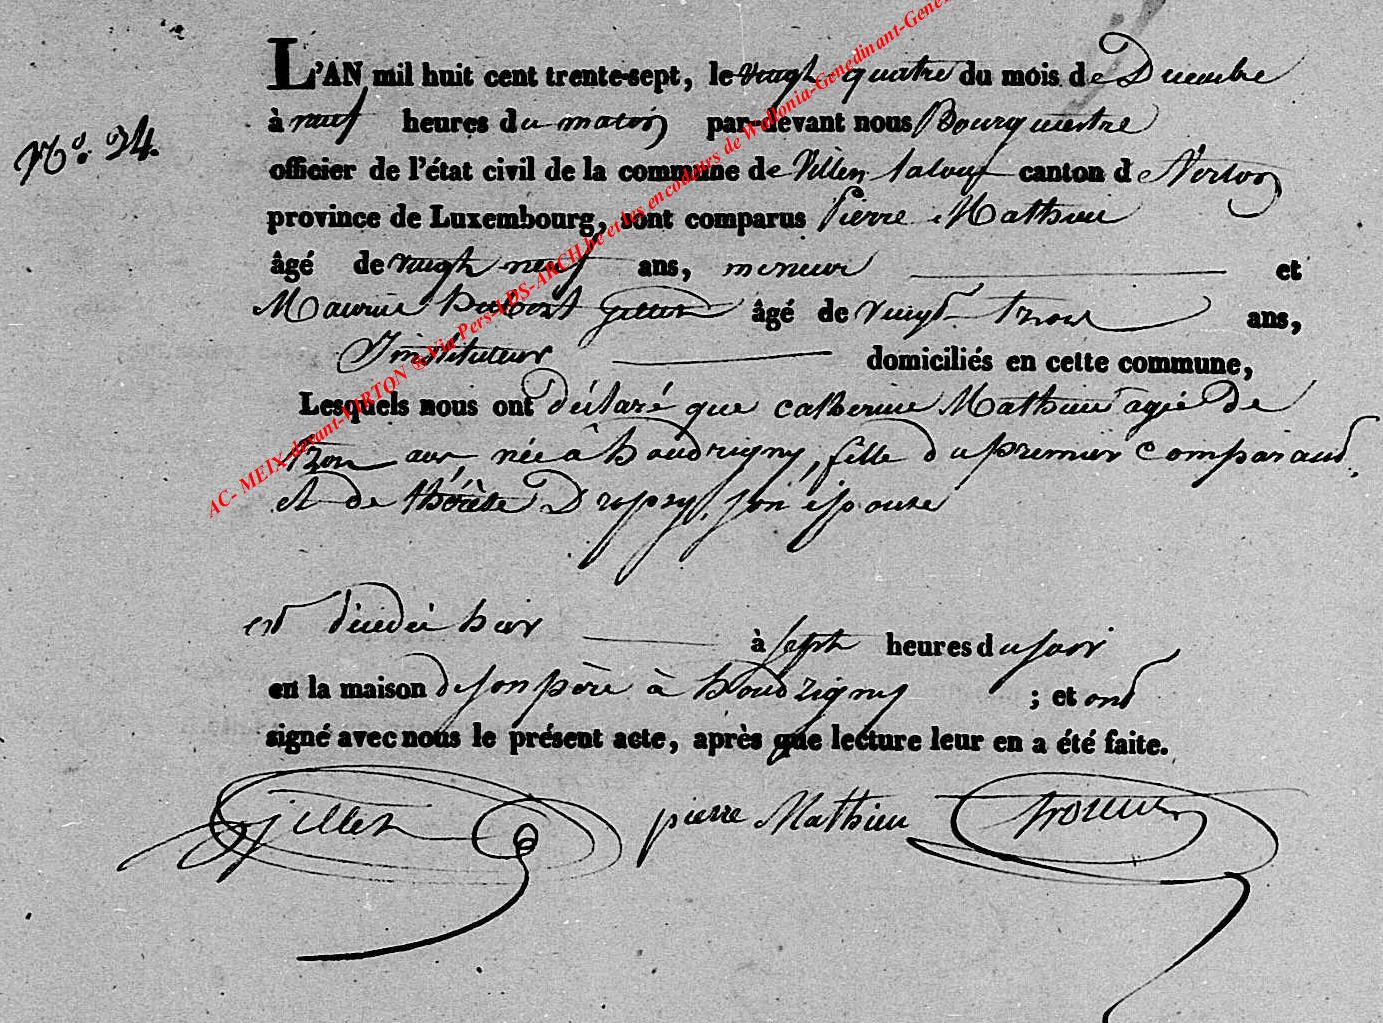 N°. 24.
L'AN mil huit cent trente-sept, le vingt quatre du mois de Decembre
à neuf heures du matin par-devant nous Bourguestre
officier de l'état civil de la commune de Villers laloup canton d Virton
province de Luxembourg, sont comparus Pierre Mathieu
âgé de vingt neuf ans, meneur et
Maurice hubert gillet âgé de vingt trois ans,
Instituteur domiciliés en cette commune,
Lesquels nous ont déclaré que catherine Mathieu agée de
trois ans née à houdrigny, fille du premier comparand,
et de thérèse Dropsy, son epouse
est décédée hier à sept heures du soir
en la maison de son père à houdrigny ; et ont
signé avec nous le présent acte, après que lecture leur en a été faite.
gillet pierre Mathieu
AC- MEIX devant-VIRTON ® Via Pers-LDS-ARCH.be et les encodeurs de Wallonia-Genedinant-Gene